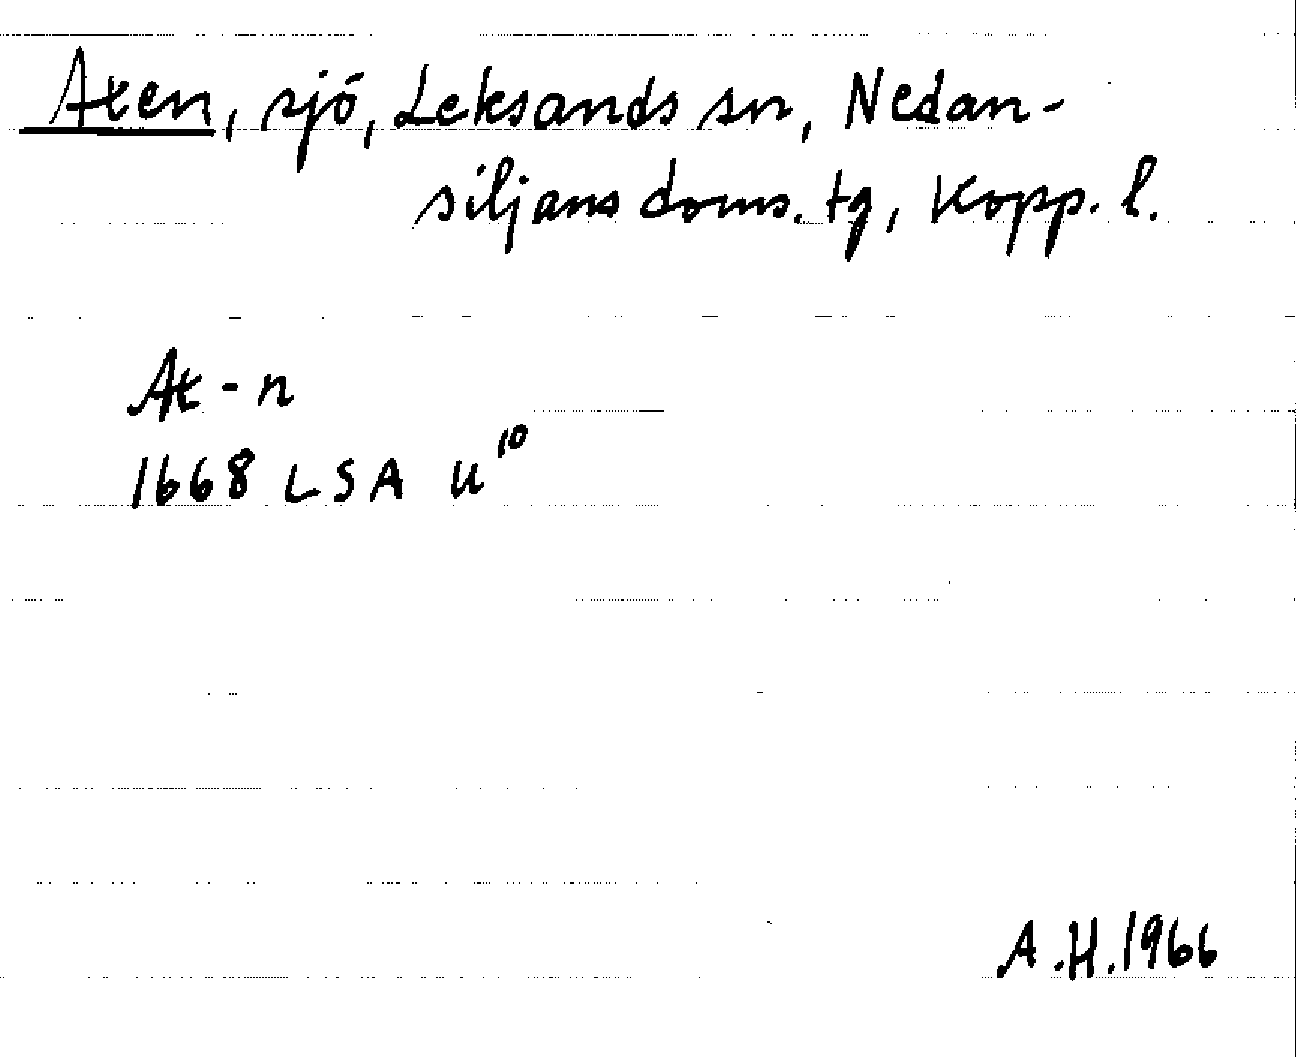 Axen, sjö, Leksands sn, Nedan-
siljans doms. tg, Kopp. l.
Ax - n
1668 LSA U¹⁰
A.H. 1966